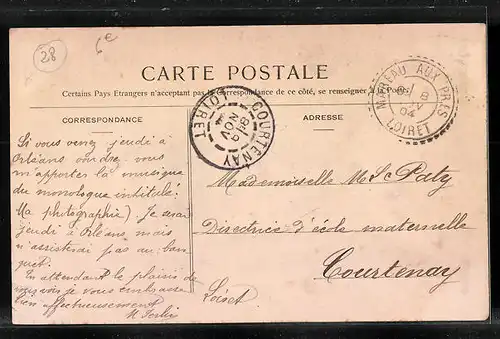 28
6e
CARTE POSTALE
Certains Pays Etrangers n'acceptant pas la Correspondance de ce côté, se renseigner à la Poste
CORRESPONDANCE
ADRESSE
COURTENAY
LOIRET
NOV
04
MAREAU AUX PRÉS
8
04
LOIRET
Si vous venez jeudi à
Orléans voudrez vous
m'apporter la musique
du monologue intitulé:
Ma photographie) Je serai
jeudi à Orléans, mais
n'assisterai pas au ban
quet.
En attendant le plaisir de
vous voir je vous embrasse
bien affectueusement
Mademoiselle M
Directrice d'école maternelle
Courtenay
Loiret.